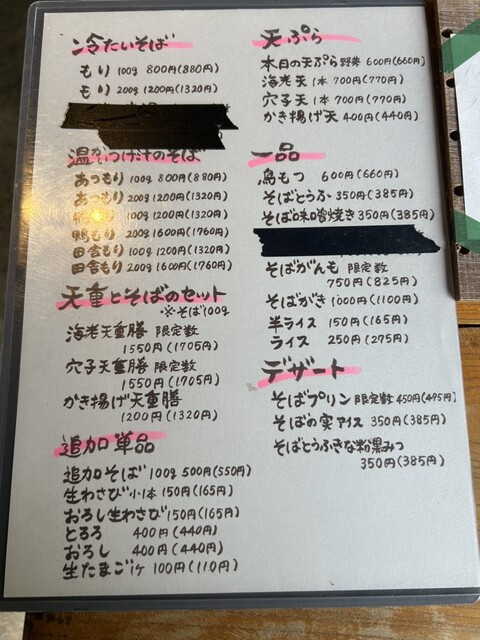 冷たいそば
もり 100g 800円(880円)
もり 200g 1200円(1320円)
温かつけ汁のそば
あつもり 100g 800円(880円)
あつもり 200g 1200円(1320円)
鴨もり 100g 1200円(1320円)
鴨もり 200g 1600円(1760円)
田舎もり 100g 1200円(1320円)
田舎もり 200g 1600円(1760円)
天重とそばのセット
※そば100g
海老天重膳 限定数
1550円(1705円)
穴子天重膳 限定数
1550円(1705円)
かき揚げ天重膳
1200円(1320円)
追加単品
追加そば 100g 500円(550円)
生わさび小1本 150円(165円)
おろし生わさび 150円(165円)
とろろ 400円(440円)
おろし 400円(440円)
生たまご1ケ 100円(110円)
天ぷら
本日の天ぷら 野菜 600円(660円)
海老天 1本 700円(770円)
穴子天 1本 700円(770円)
かき揚げ天 400円(440円)
一品
鳥もつ 600円(660円)
そばとうふ 350円(385円)
そば味噌焼き 350円(385円)
そばがんも 限定数
750円(825円)
そばがき 1000円(1100円)
半ライス 150円(165円)
ライス 250円(275円)
デザート
そばプリン 限定数 450円(495円)
そばの実アイス 350円(385円)
そばとうふきな粉黒みつ
350円(385円)